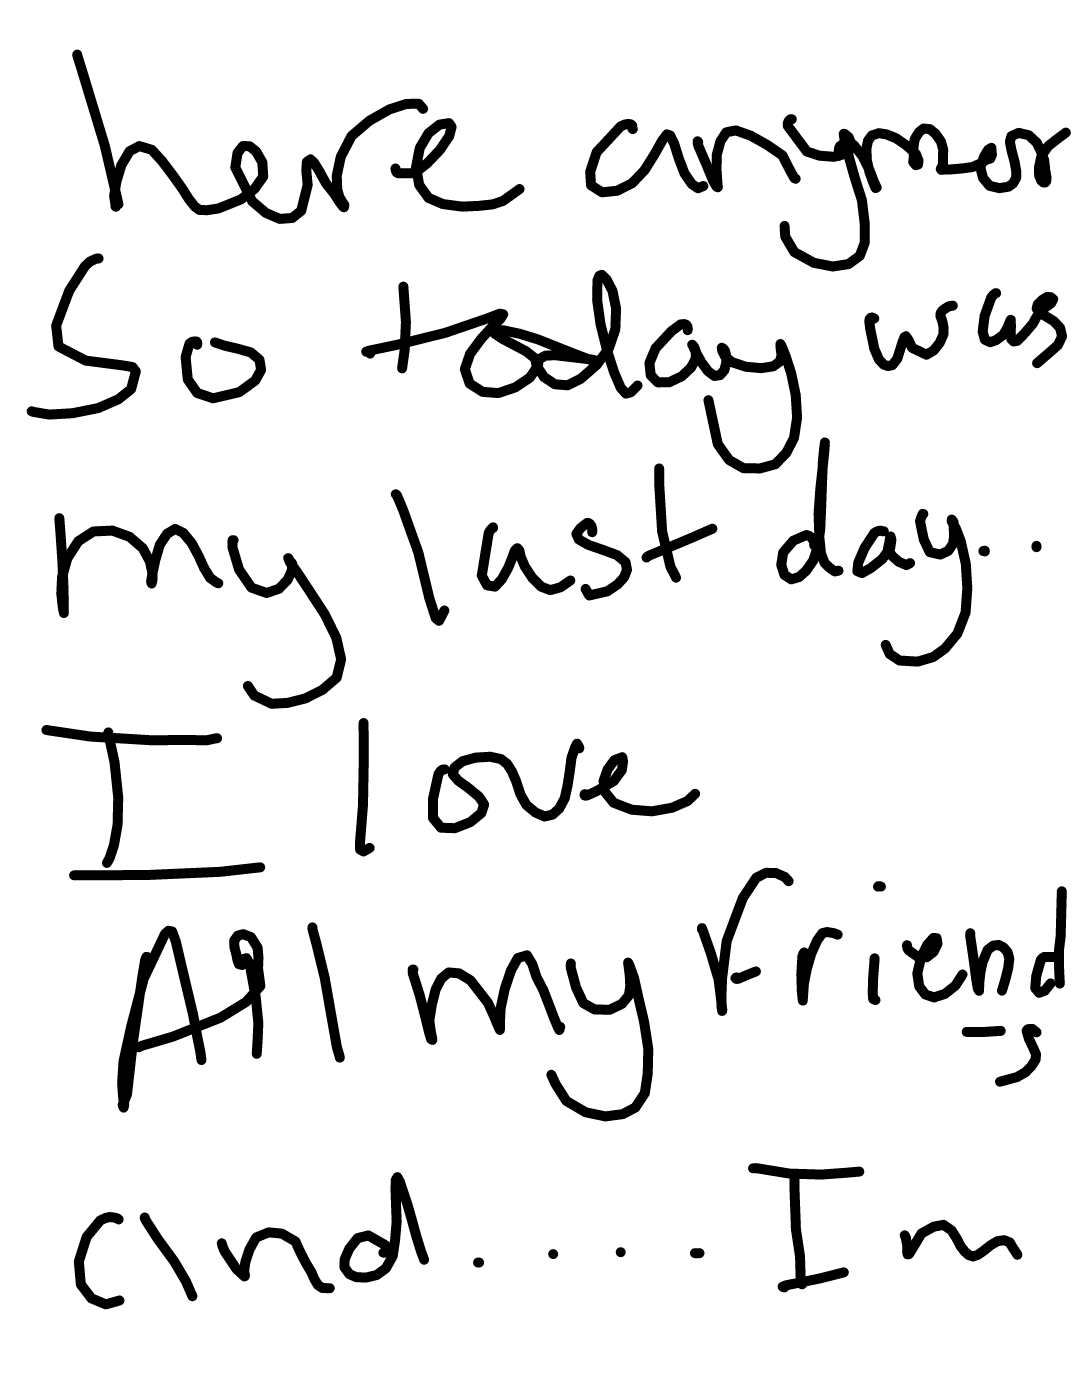 here anymor
So today was
my last day..
I love
All my friend
-s
and.... Im